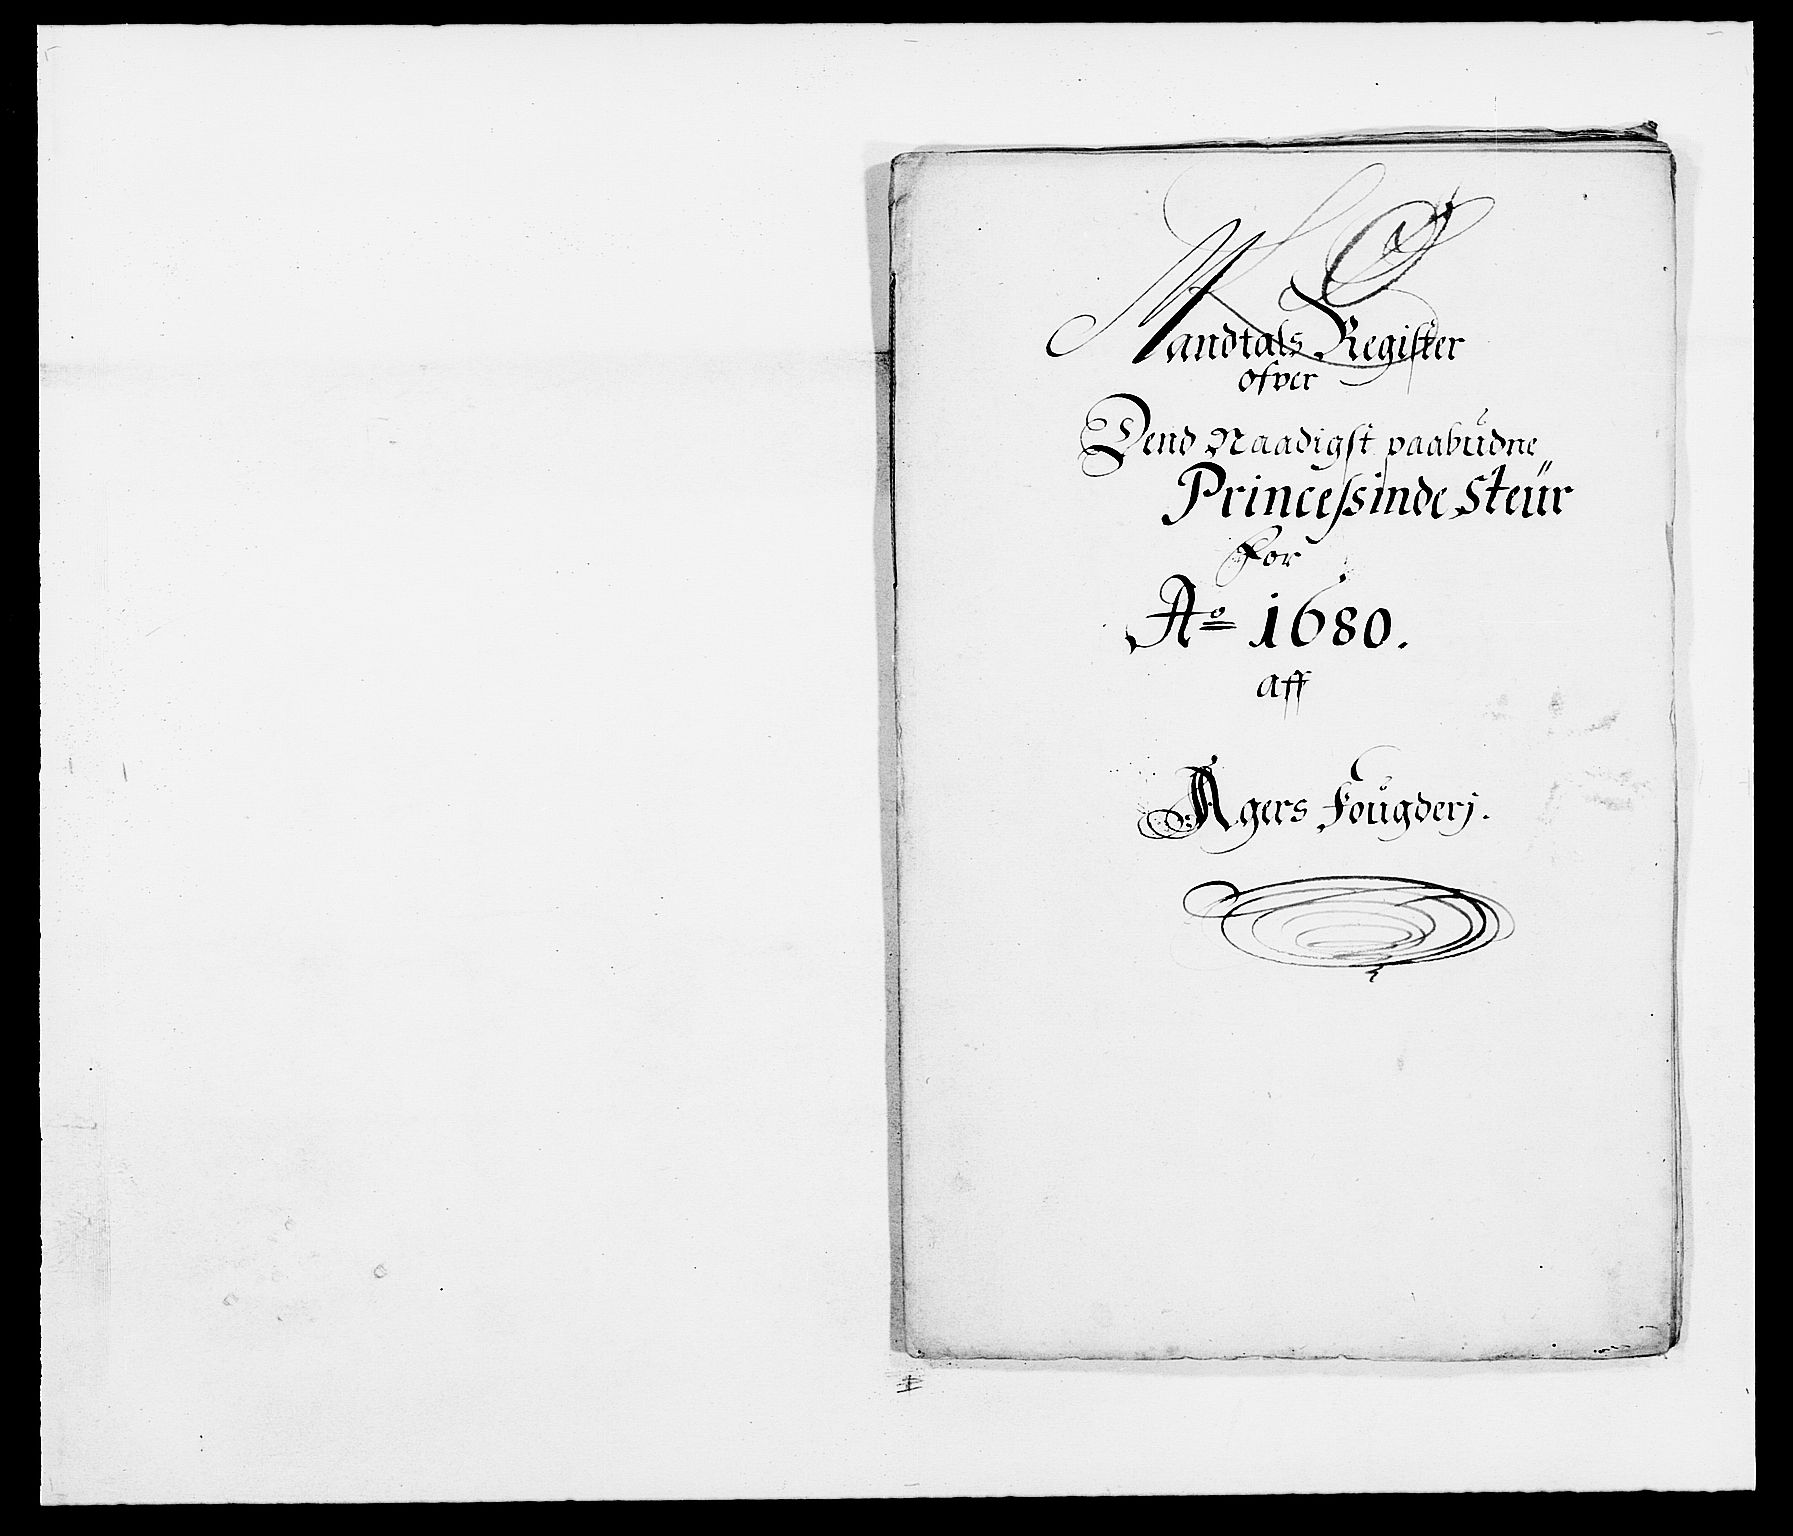 Mandtals Register
ofver
Dend Naadigst paabudne
Princessinde Steür
For
Aº 1680.
aff
Agers Fougderj.